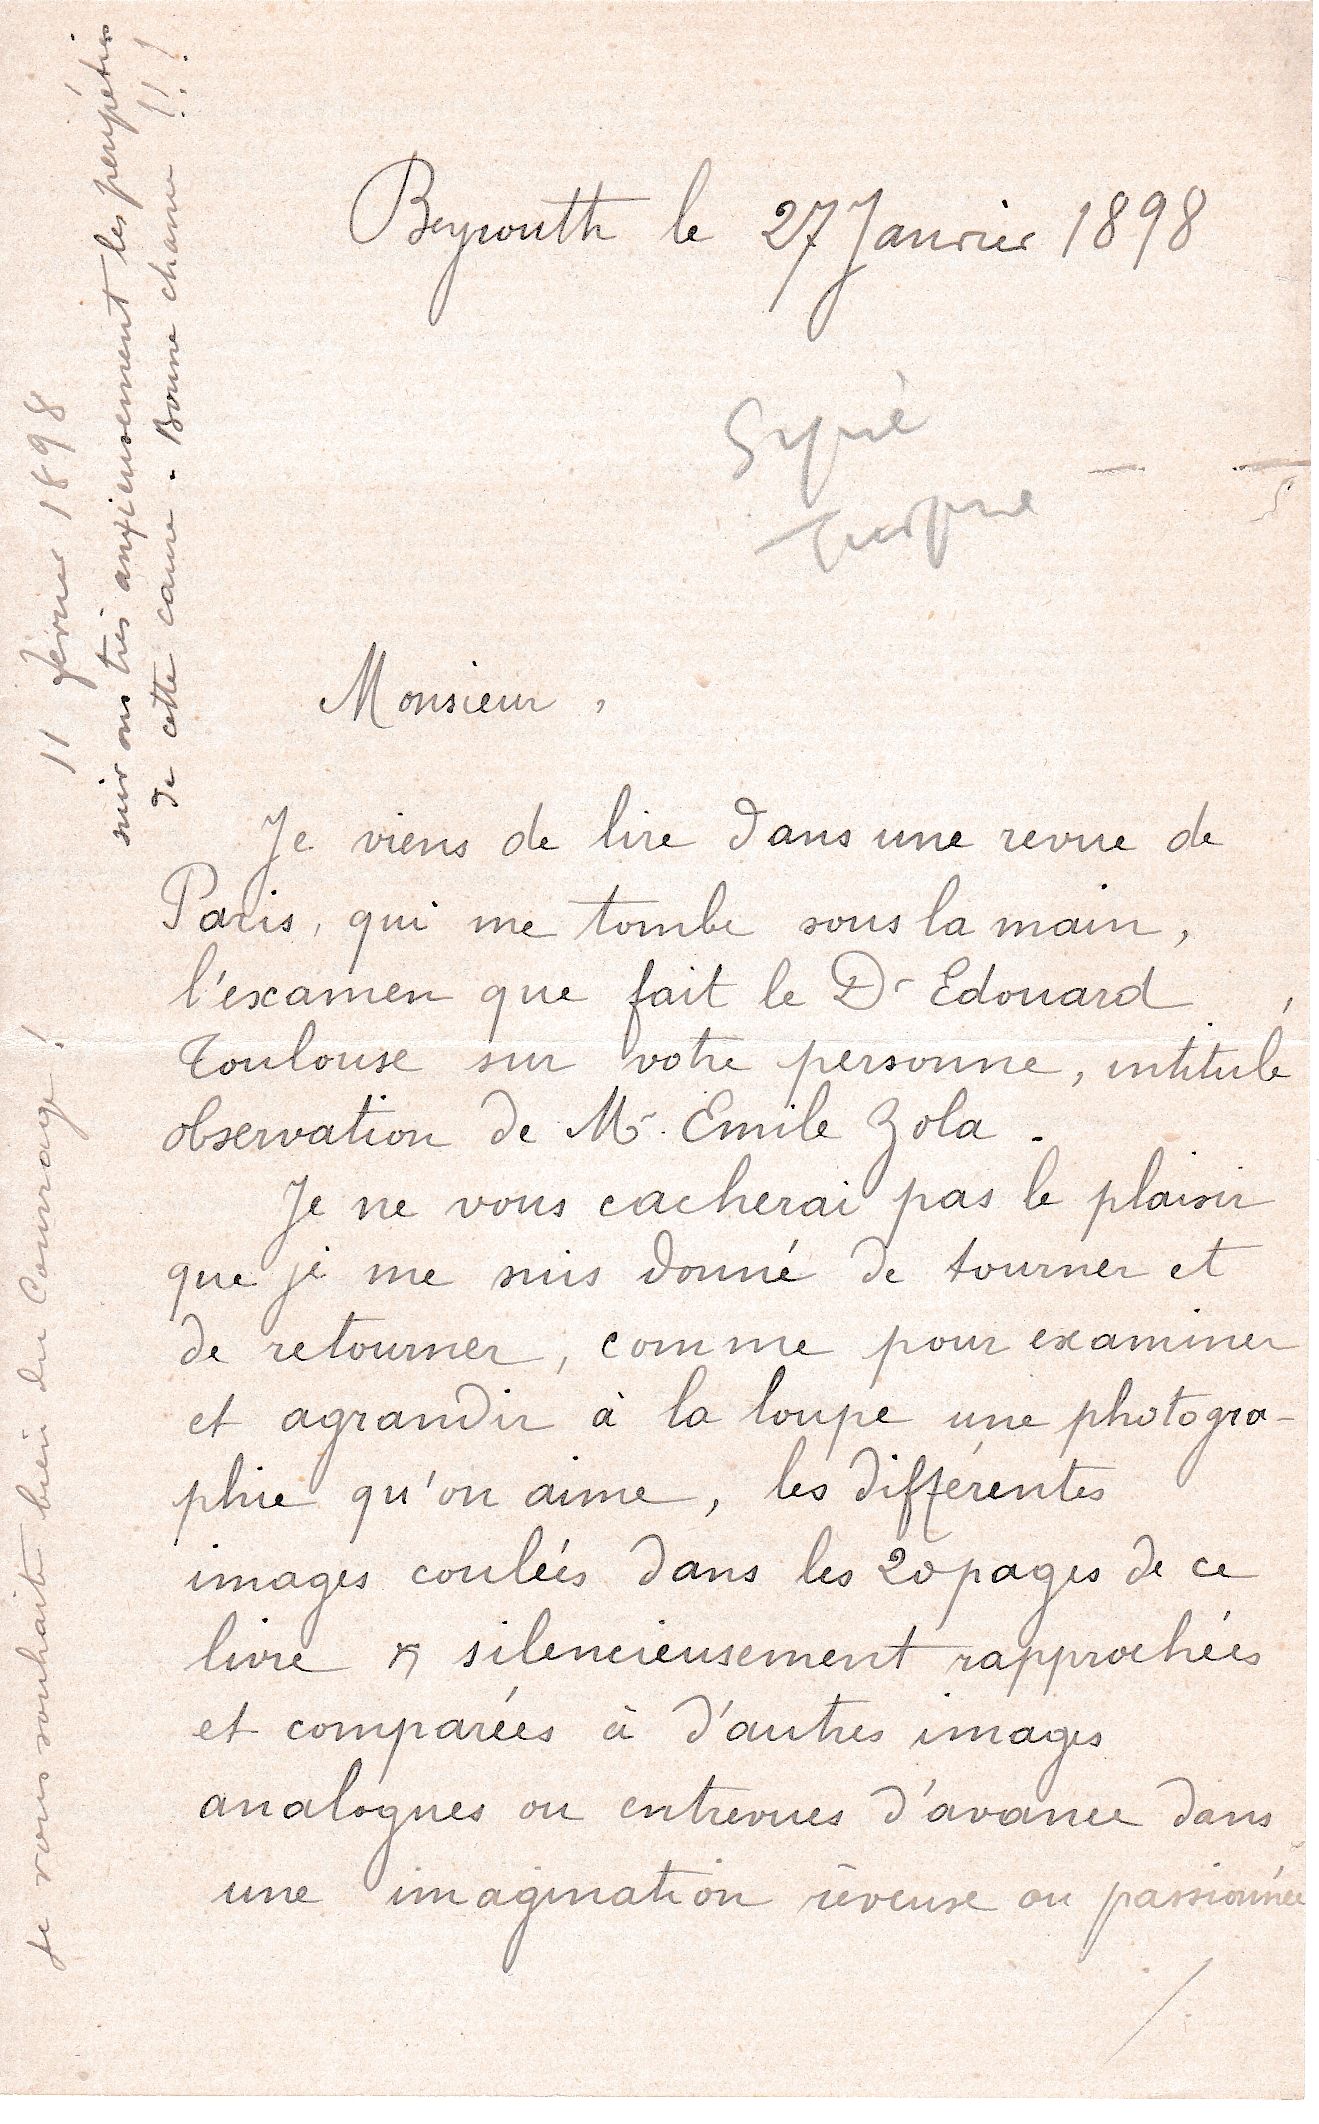 Beyrouth le 27 Janvier 1898
Syrie
Turquie
Monsieur,
Je viens de lire dans une revue de
Paris, qui me tombe sous la main,
l'examen que fait le Dr Edouard
Toulouse sur votre personne, intitulé
observation de Mr. Emile Zola.
Je ne vous cacherai pas le plaisir
que je me suis donné de tourner et
de retourner, comme pour examiner
et agrandir à la loupe une photogra-
phie qu'on aime, les différentes
images coulées dans les 20 pages de ce
livre & silencieusement rapprochées
et comparées à d'autres images
analogues ou entrevues d'avance dans
une imagination rêveuse ou passionnée
/.
je vous souhaite bien du Courage !
11 février 1898
suivons très anxieusement les péripéties
de cette cause. Bonne chance !!!